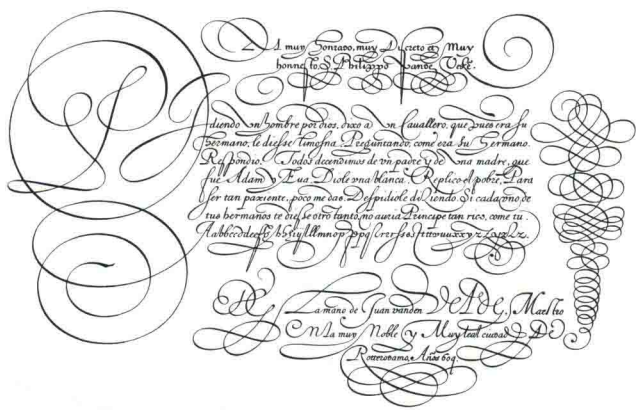 Al muy Honrado, muy Discreto et Muy
honnesto, S. Philippo Vande Velde.
Pidiendo Vn hombre por dios, dixo a Vn Cavallero, que pues era su
hermano, le diesse limosna. Preguntando, come era su Hermano.
Respondio. Todos decendimos de vn padre y de Vna madre, que
fue Adam y Eva. Diole vna blanca. Replico el pobre, Para
ser tan pariente, poco me das. Despidiole diziendo, Si cada vno de
tus hermanos te diesse otro tanto, no auria Principe tan rico, come tu.
De La mano de Juan vanden Velde, Maestro
En la muy Noble y Muy leal ciudad De
Rotterodamo, Año 1609.